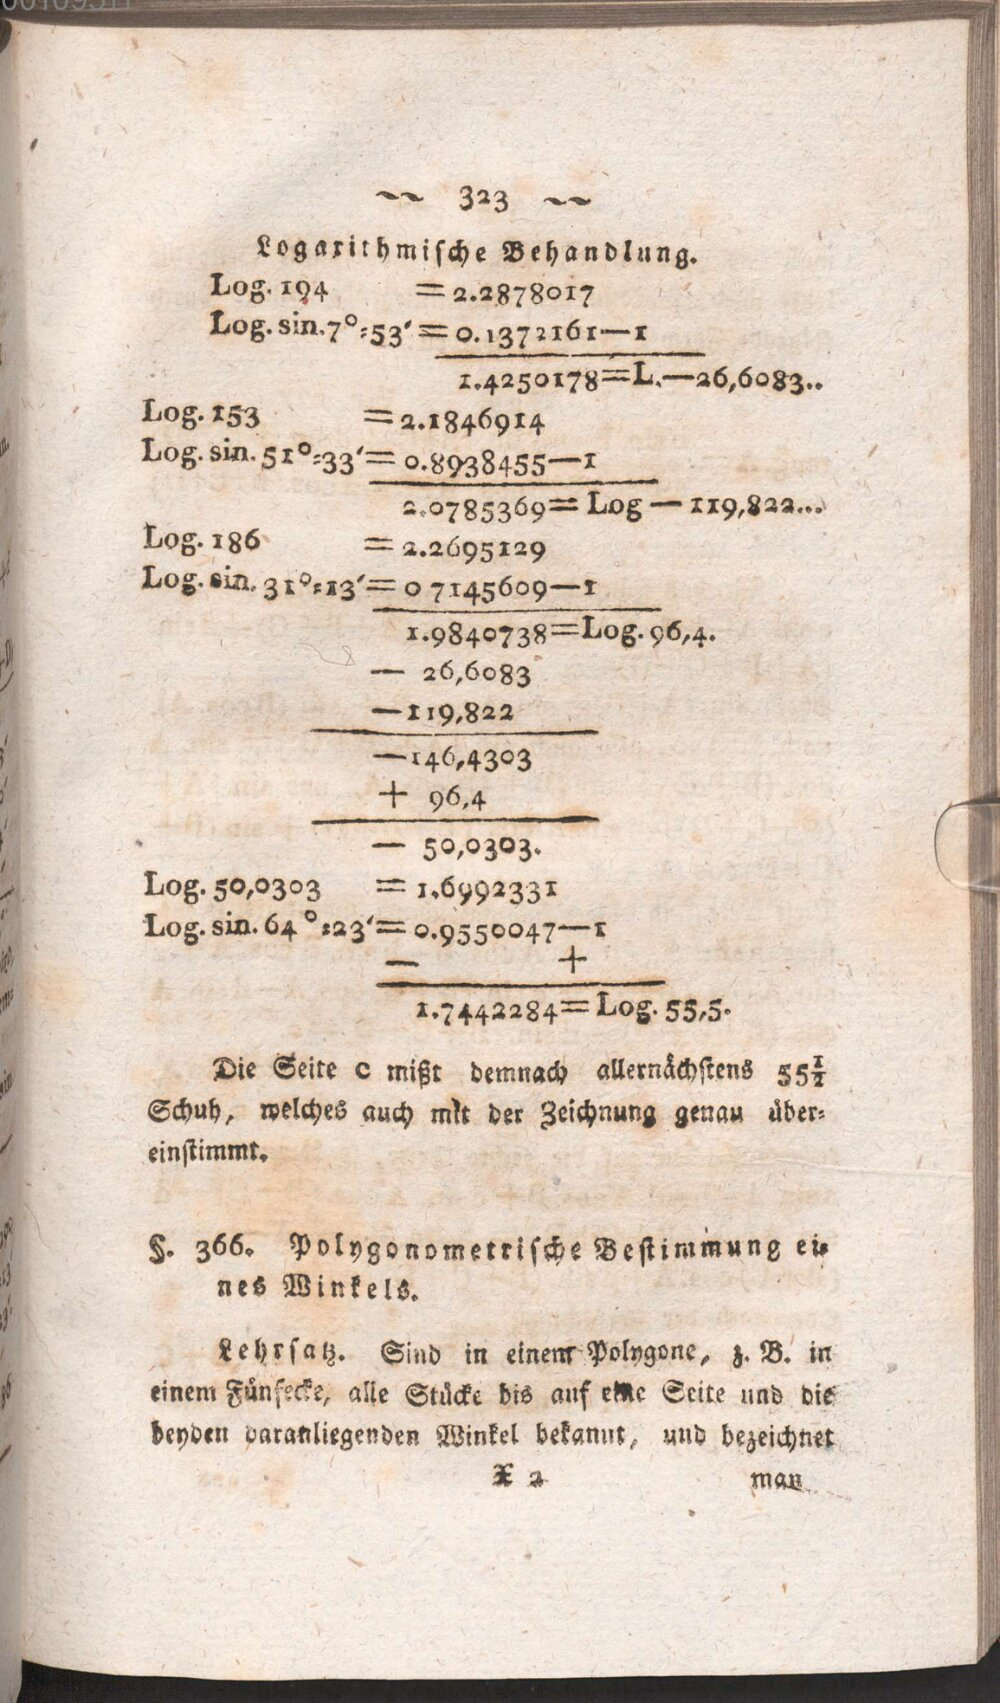 ~~ 323 ~~
Logarithmische Behandlung.
Log. 194 = 2.2878017
Log. sin. 7°:53′ = 0.1372161—1
1.4250178=L.—26,6083..
Log. 153 = 2.1846914
Log. sin. 51°:33′ = 0.8938455—1
2.0785369= Log — 119,822...
Log. 186 = 2.2695129
Log. sin. 31°:13′ = 0 7145609—1
1.9840738=Log. 96,4.
— 26,6083
—119,822
—146,4303
+ 96,4
— 50,0303.
Log. 50,0303 = 1.6992331
Log. sin. 64°:23′ = 0.9550047—1
— +
1.7442284= Log. 55,5.
Die Seite c mißt demnach allernächstens 55½
Schuh, welches auch mit der Zeichnung genau über-
einstimmt.
§. 366. Polygonometrische Bestimmung ei-
nes Winkels.
Lehrsatz. Sind in einem Polygone, z. B. in
einem Fünfecke, alle Stücke bis auf eine Seite und die
beyden daranliegenden Winkel bekannt, und bezeichnet
X 2 man